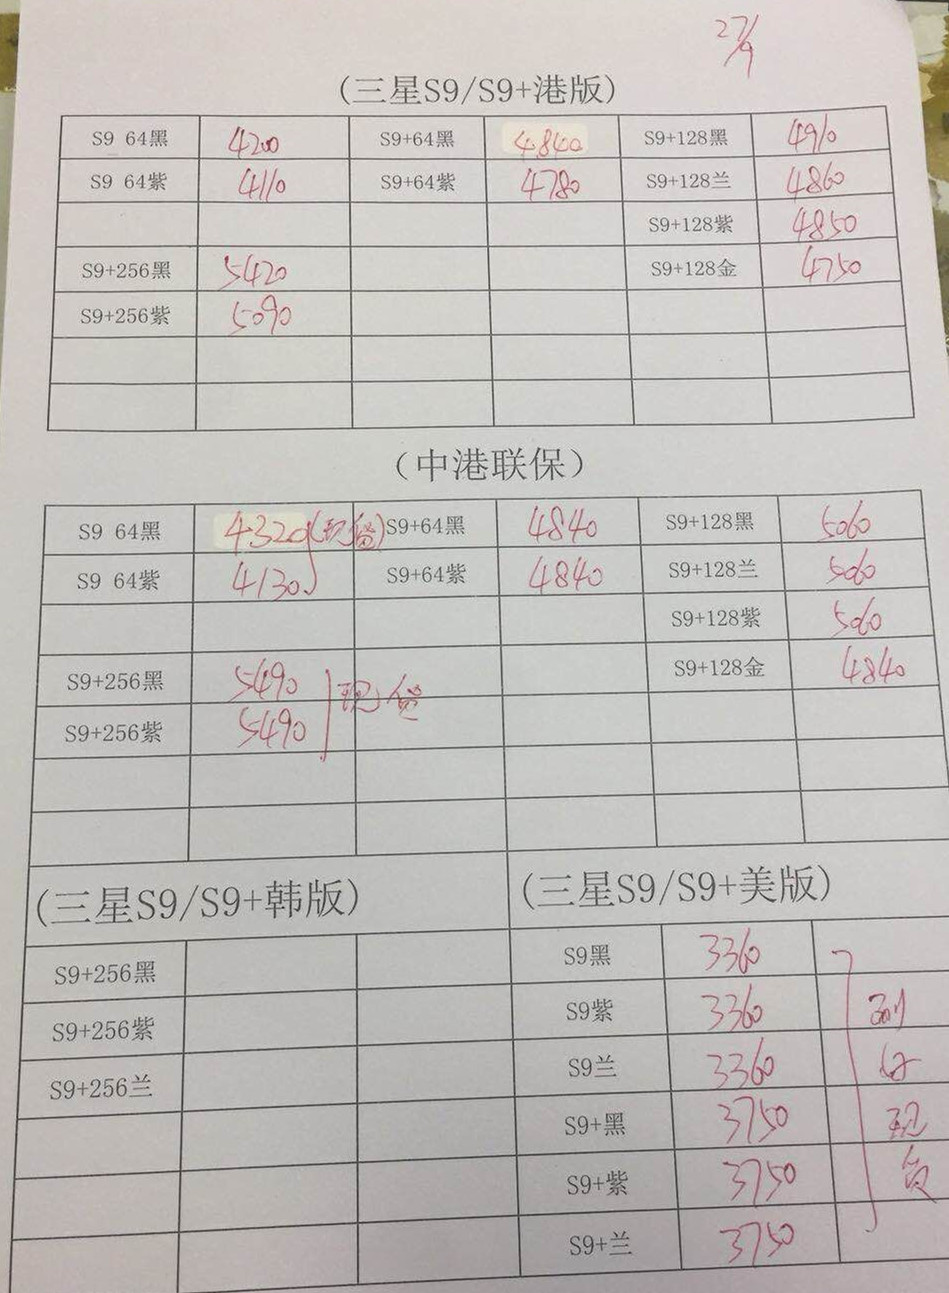 27/9
(三星S9/S9+港版)
S9 64黑 4200 S9+64黑 4840 S9+128黑 4910
S9 64紫 4110 S9+64紫 4780 S9+128兰 4860
S9+128紫 4850
S9+256黑 5420 S9+128金 4750
S9+256紫 5090
(中港联保)
S9 64黑 4320(现货) S9+64黑 4840 S9+128黑 5060
S9 64紫 4130 S9+64紫 4840 S9+128兰 5060
S9+128紫 5060
S9+256黑 5490 现货 S9+128金 4840
S9+256紫 5490
(三星S9/S9+韩版) (三星S9/S9+美版)
S9+256黑 S9黑 3360
S9+256紫 S9紫 3360
S9+256兰 S9兰 3360
S9+黑 3750 现
S9+紫 3750 货
S9+兰 3750